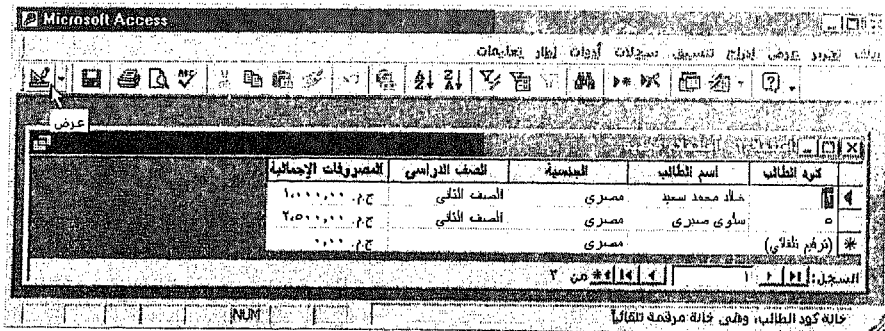 Microsoft Access
ملف تحرير عرض إدراج تنسيق سجلات أدوات إطار تعليمات
عرض
كود الطالب اسم الطالب الجنسية الصف الدراسي المصروفات الإجمالية
خالد محمد سعيد مصرى الصف الثانى ج.م. ١,٠٠٠,٠٠
٥ سلوى صبرى مصرى الصف الثانى ج.م. ٢,٥٠٠,٠٠
(ترقيم تلقائي) مصرى ج.م. ٠,٠٠
السجل: ١ من ٢
خانة كود الطالب، وهى خانة مرقمة تلقائيا
NUM